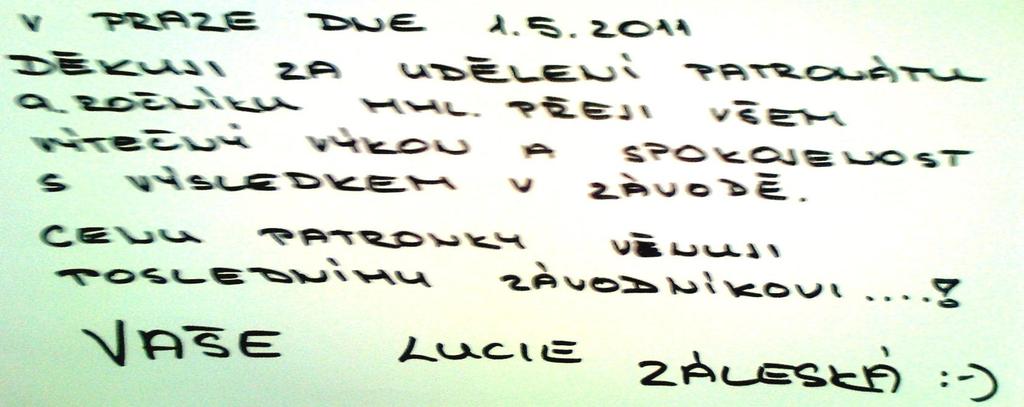 V PRAZE DNE 1.5.2011
DĚKUJI ZA UDĚLENÍ PATRONÁTU
9.ROČNÍKU MML. PŘEJI VŠEM
VÍTEČNÝ VÝKON A SPOKOJENOST
S VÝSLEDKEM V ZÁVODĚ.
CENU PATRONKY VĚNUJI
POSLEDNÍMU ZÁVODNÍKOVI ....!
VAŠE LUCIE ZÁLESKÁ :-)